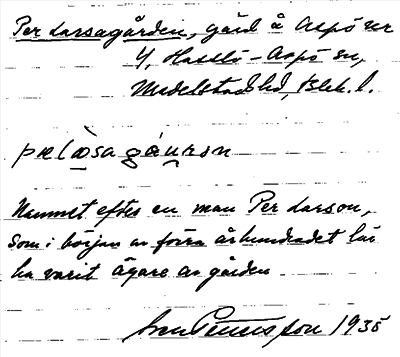 Per Larsagården, gård å Aspö ser
4, Hasslö-Aspö sn,
Medelstads hd, Blek. l.
pælòsagáurən
Namnet efter en man Per Larson,
som i början av förra århundradet lär
ha varit ägare av gården.
1935